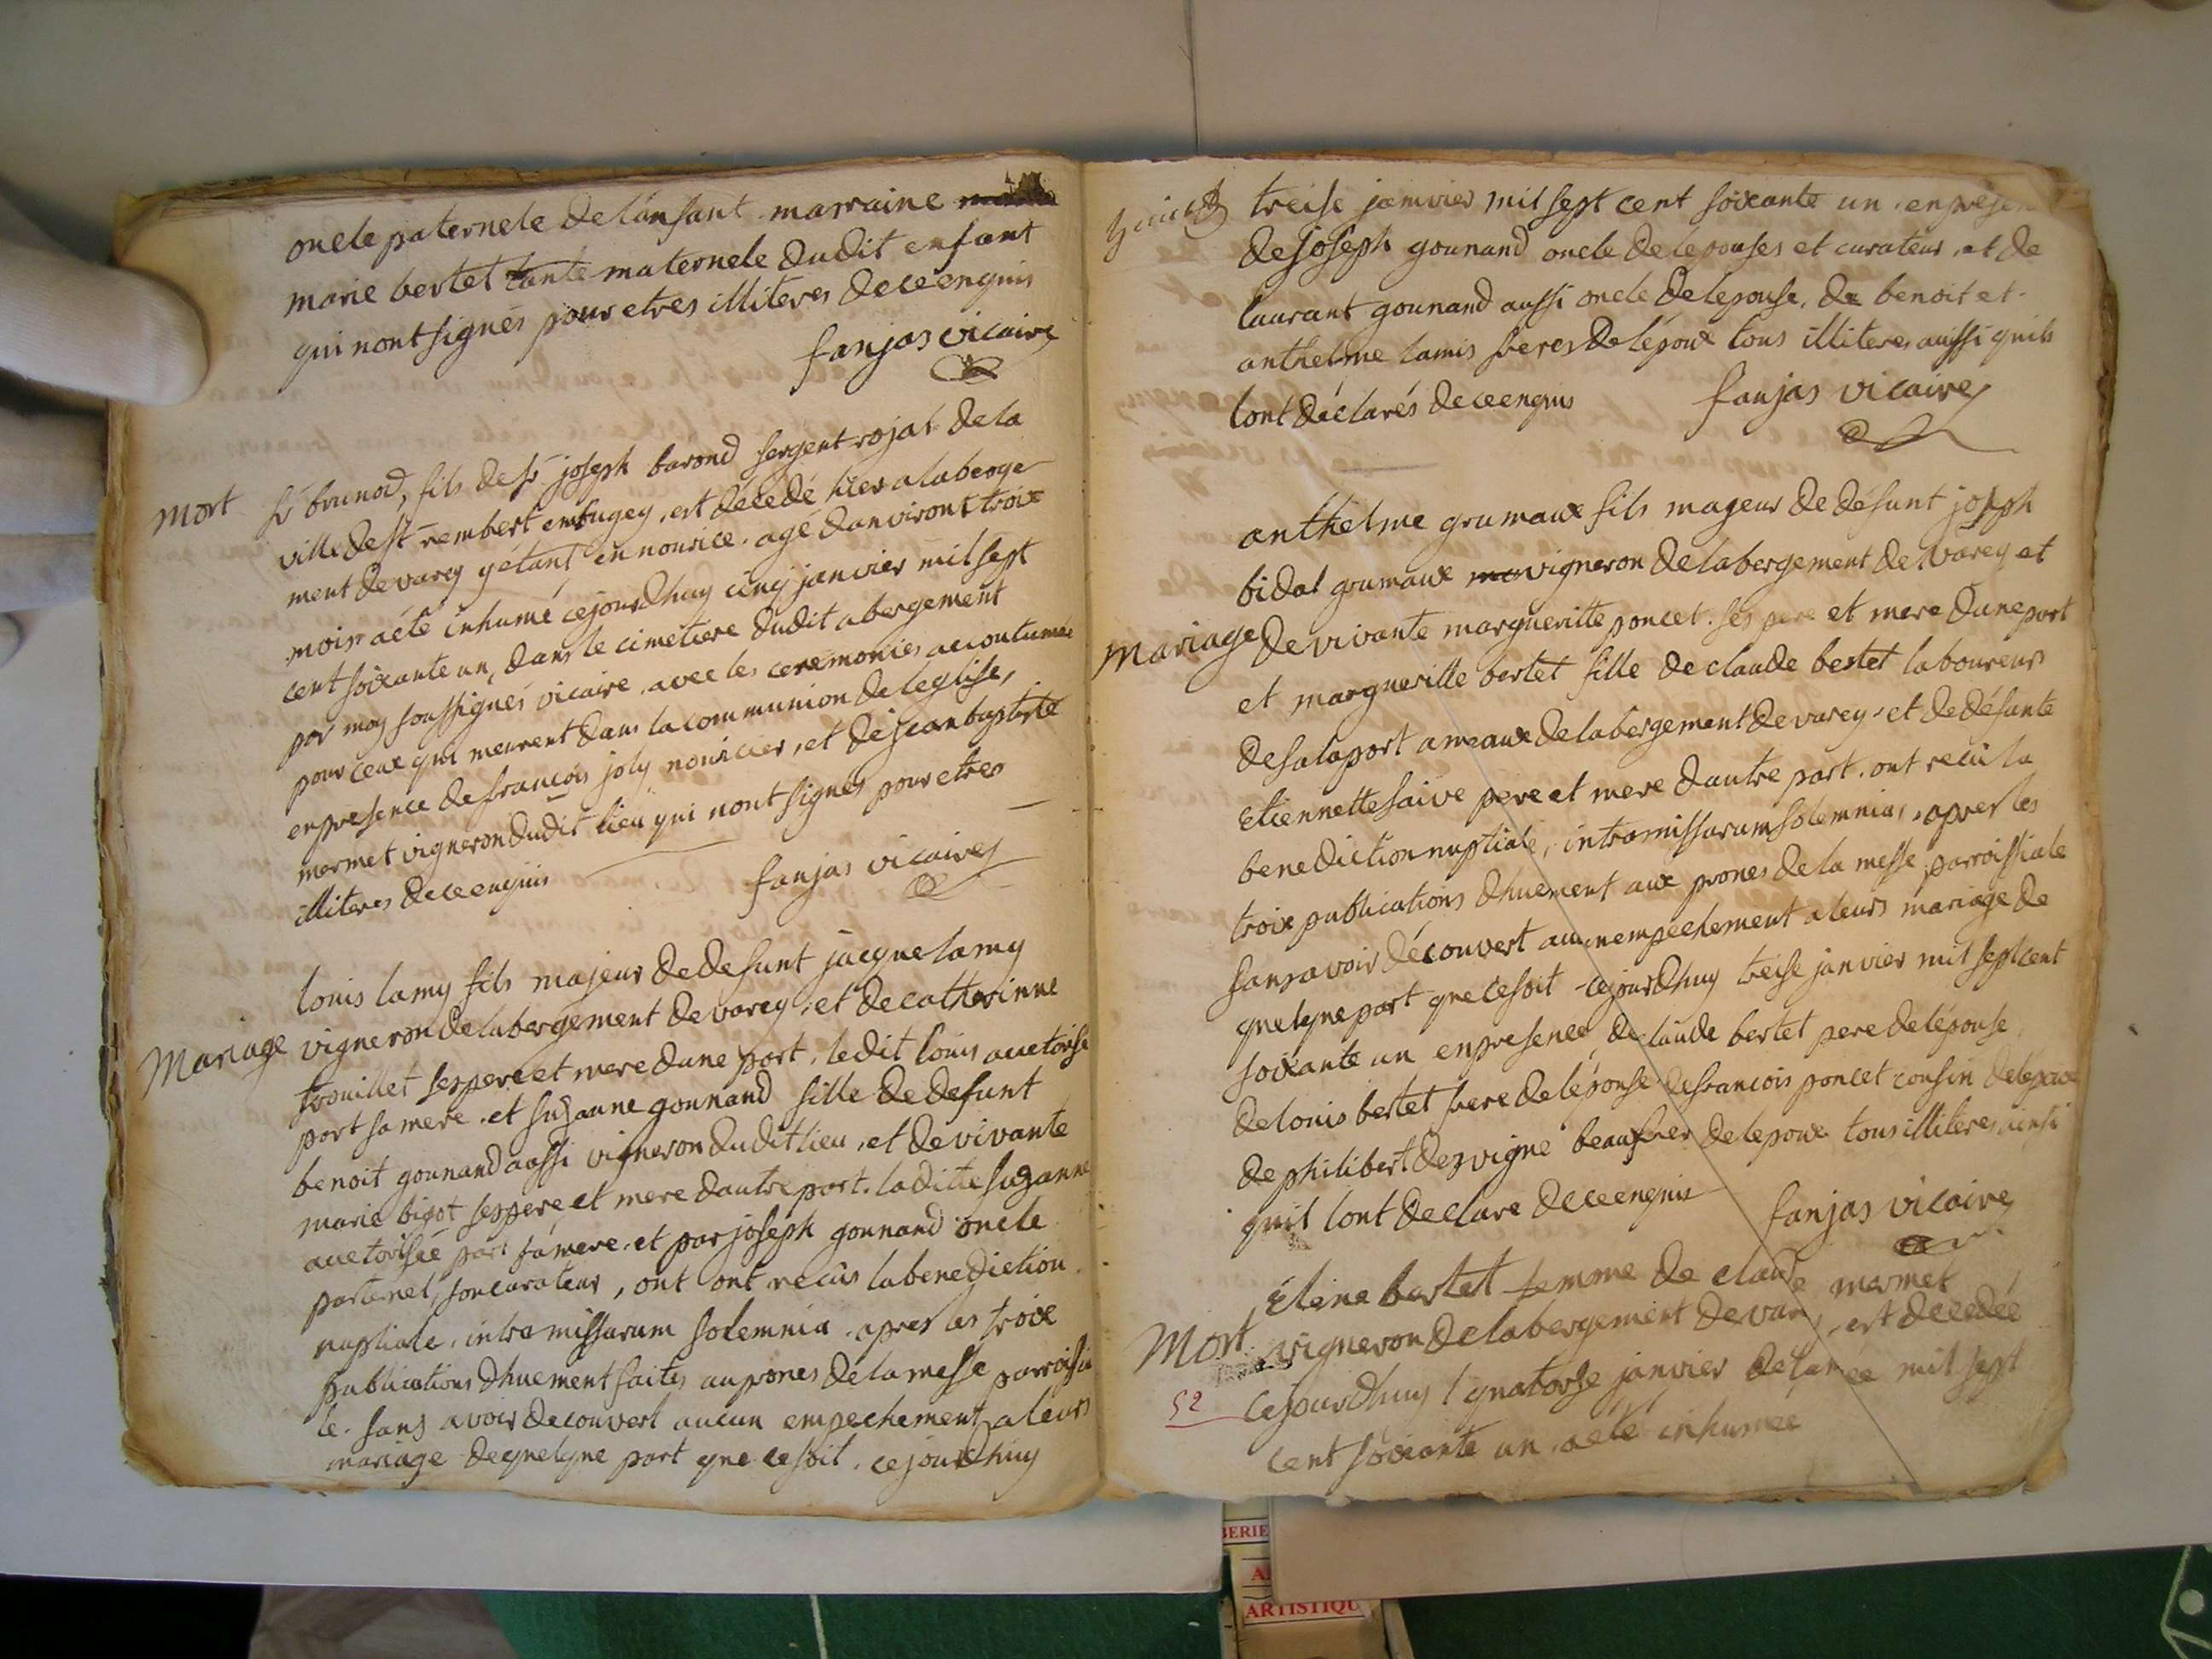 oncle paternele de lanfant marraine
marie bertet tante maternele dudit enfant
qui nont signés pour etres illiteres de ce enquis
fanjas vicaire
mort
sr brunod, fils de sr joseph barond sergent rojal de la
ville de st rembert en bugey, est décedé hier a laberge
ment de varey y étant en nourice. agé danviront troix
mois a été inhumé cejourdhuy cinq janvier mil sept
cent soixante un, dans le cimetiere dudit abergement
par moy soussignés vicaire avec les ceremonies accoutumée
pour ceux qui meurent dans la communion de leglise,
en presence de francois joly nouricier, et de jean baptiste
mermet vigneron dudit lieu qui nont signés pour etres
illiteres de ce enquis
fanjas vicaire
louis lamy fils majeur de defunt jacque lamy
Mariage
vigneron de labergement de varey, et de catherinne
trouillet ses pere et mere dune part, ledit louis auctorisé
part sa mere. et suzanne gounand fille de defunt
benoit gounand aussi vigneron dudit lieu, et de vivante
marie bigot ses pere et mere dautre part. la ditte suzanne
auctorisée part sa mere. et par joseph gounand oncle
partenel, son curateur, ont ont recûs la benediction
nuptiale, intra missarum solemnia. apres les troix
publications dhuement faites au prones de la messe parroissia
le. sans avoir decouvert aucun empechement a leurs
mariage de quelque part que ce soit. ce jourdhuy
treise janvier mil sept cent soixante un. en presen
de joseph gounand oncle de lepouses et curateur, et de
laurant gounand aussi oncle de lepouse, de benoit et
anthelme lamis freres de lépoux tous illiteres aussi quils
lont déclarés de ce enquis
fanjas vicaire
anthelme grumaux fils mageur de défunt joseph
bidal grumaux vigneron de labergement de varey et
Mariage
de vivante margueritte poncet. ses pere et mere dune part
et margueritte bertet fille de claude bertet laboureur
de salaport ameaux de labergement de varey. et de défunte
etiennette saive pere et mere dautre part. ont recû la
benediction nuptiale, intra missarum solemnia, apres les
troix publications dhuement aux prones de la messe parroissiale
sans avoir découvert aucun empechement a leurs mariage de
quelque part que ce soit cejourdhuy treise janvier mil sept cent
soixante un en presence de claude bertet pere de lépouse
de louis bertet frere de lépouse de francois poncet cousin de lepoux
de philibert desvigne beaufrer de lepoux tous illiteres ainsi
quil lont declare de ce enquis
fanjas vicaire
Eleine bertet femme de claude mermet
Mort
vigneron de labergement de varey, est decedée
cejourdhuy quatorse janvier de lanée mil sept
52
cent soixante un. a été inhumée
BERIE
A
ARTISTIQU